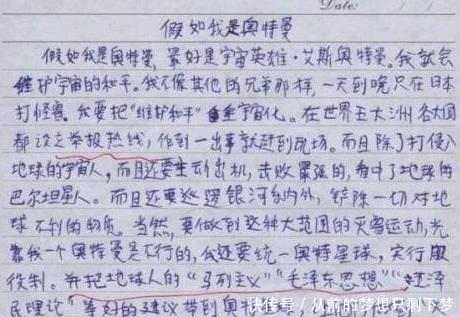 Date:
假如我是奥特曼
假如我是奥特曼,最好是宇宙英雄·艾斯奥特曼。我就会
维护宇宙的和平。我不像其他的兄弟那样,一天到晚只在日本
打怪兽。我要把“维护和平”宇宙化。在世界五大洲各大国
都设立举报热线,作到一出事就赶到现场。而且除了打侵入
地球的宇宙人,而且还要主动出机,击败紧强的,看中了地球的
巴尔坦星人。而且还要巡逻银河系内外,铲除一切对地
球不利的物质。当然,要做到这种大范围的灭害运动,光
靠我一个奥特曼是不行的,我还要统一奥特星球,实行服
役制。并把地球人的“马列主义”“毛泽东思想”“
民理论”等好的建议带到奥
快传号/从前的梦想只剩下梦